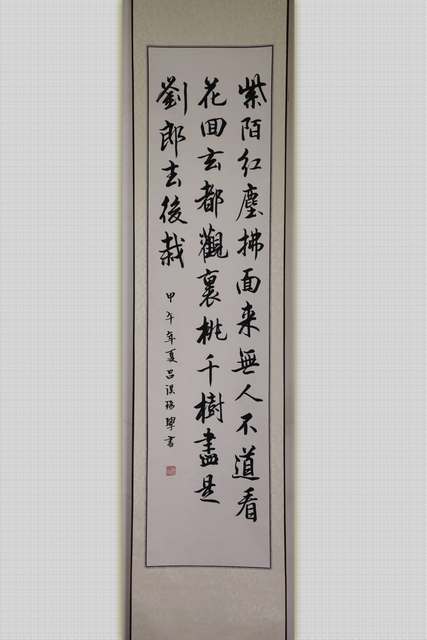 紫陌红塵拂面来無人不道看
花回玄都觀裏桃千樹盡是
劉郎去後栽
甲午年夏吕書